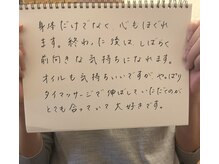 身体だけでなく 心もほぐれ
ます。終わった後は しばらく
前向きな気持ちになれます。
オイルも気持ちいいですが やっぱり
タイマッサージで伸ばしていただくのが
とても合っていて大好きです。